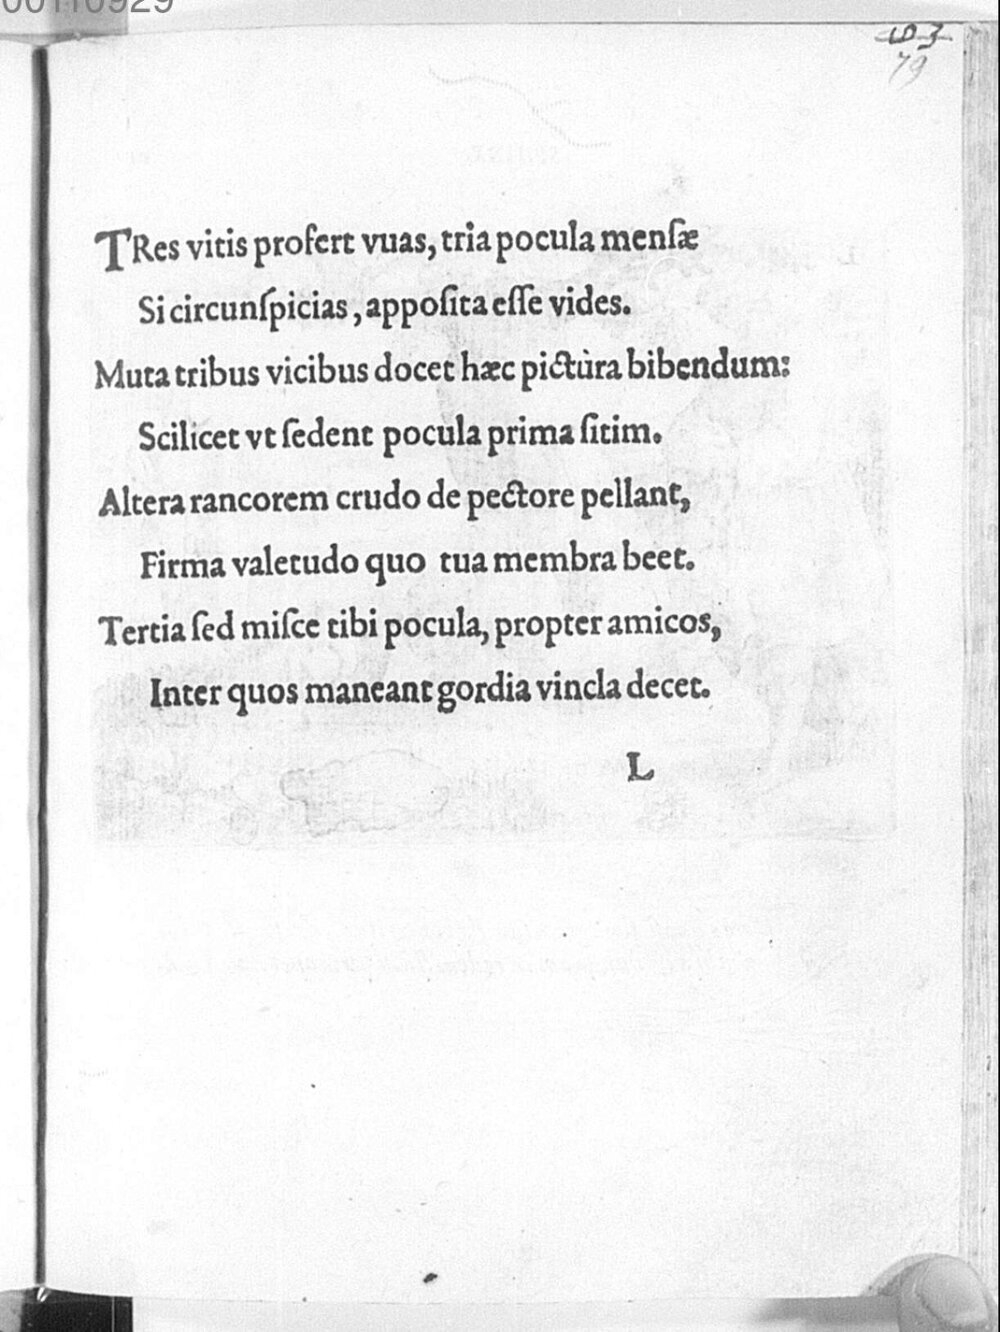 00110929
103
79
TRes vitis profert vuas, tria pocula menſæ
Si circunſpicias, appoſita eſſe vides.
Muta tribus vicibus docet hæc pictùra bibendum:
Scilicet vt ſedent pocula prima ſitim.
Altera rancorem crudo de pectore pellant,
Firma valetudo quo tua membra beet.
Tertia ſed miſce tibi pocula, propter amicos,
Inter quos maneant gordia vincla decet.
L